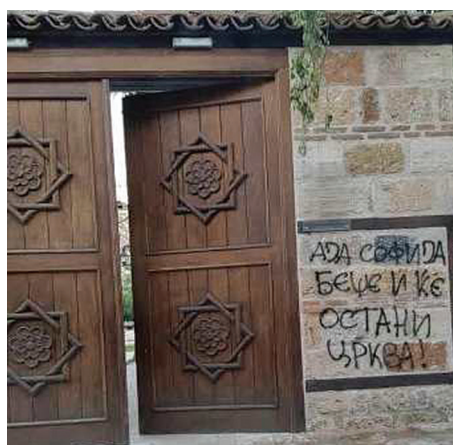 АЈА СОФИЈА
БЕШЕ И ЌЕ
ОСТАНИ
ЦРКВА!